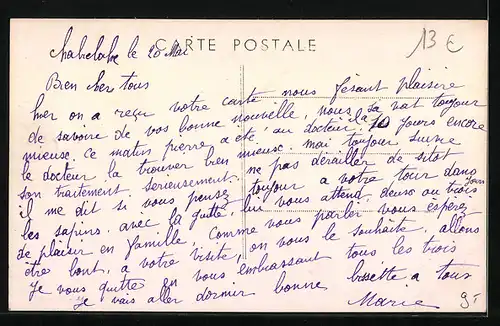 CARTE POSTALE
13 €
le 20 Mai
Bien cher tous
hier on a reçu votre carte nous fesant plaisire
de savoire de vos bonne nouvelle, nous sa vat toujour
mieuse. ce matin pierre a été au docteur il a 10 jours encore
le docteur la trouver bien mieuse. mai toujour suivre
son traitement sereusement. ne pas derailler de sitot
il me dit si vous pensez toujour a votre tour dans
les sapins. avec la gutte, lui vous attend, deuse ou trois jours
de plaisir en famille, comme vous parler vous espérez
être bont, a votre visite, on vous le souhaite, allons
Je vous quitte en vous embrassant tous les trois
Je vais aller dormir bonne a tous
Marie
9.-